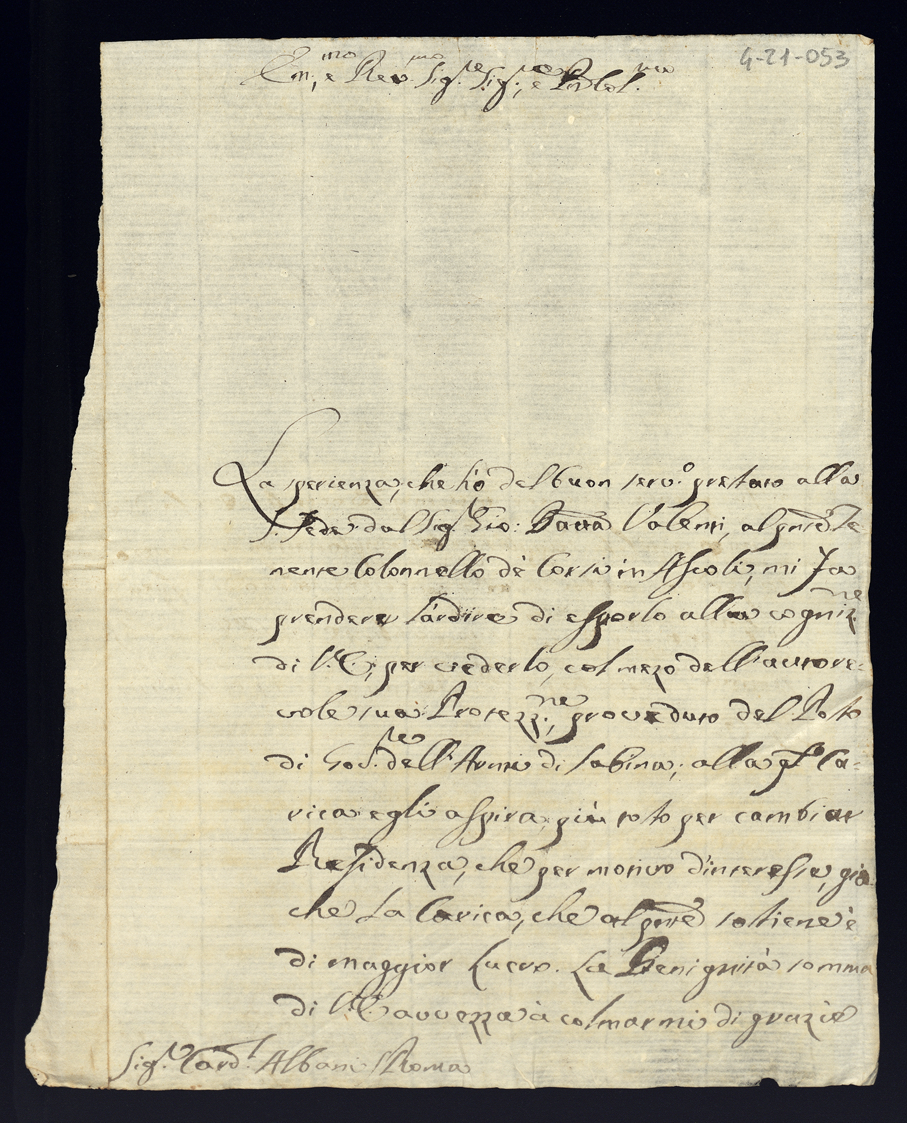 4-21-053
Em:mo, e Rev:mo Sig.re Sig.re, e Prõn Col.mo
La sperienza, che hò del buon serv.o prestato alla
S. Sede dal Sig.r Gio: Batta Valenti, al pñte Te
nente Colonnello de' Corsi in Ascoli, mi fa
prendere l'ardire di esporlo alla cogniz.ne
di V.E., per vederlo, col mezo dell'autore:
vole sua Protezz.ne, proveduto del Posto
di Gov.re dell'Armi di Sabina; alla q.le Ca:
rica egli aspira, più tosto per cambiar
Residenza, che per motivo d'interesse, già
che La Carica, che al pñte sostiene è
di maggior Lucro. La Benignità somma
di V.E. avvezza à colmarmi di grazie
Sig.r Card.l Albani Roma